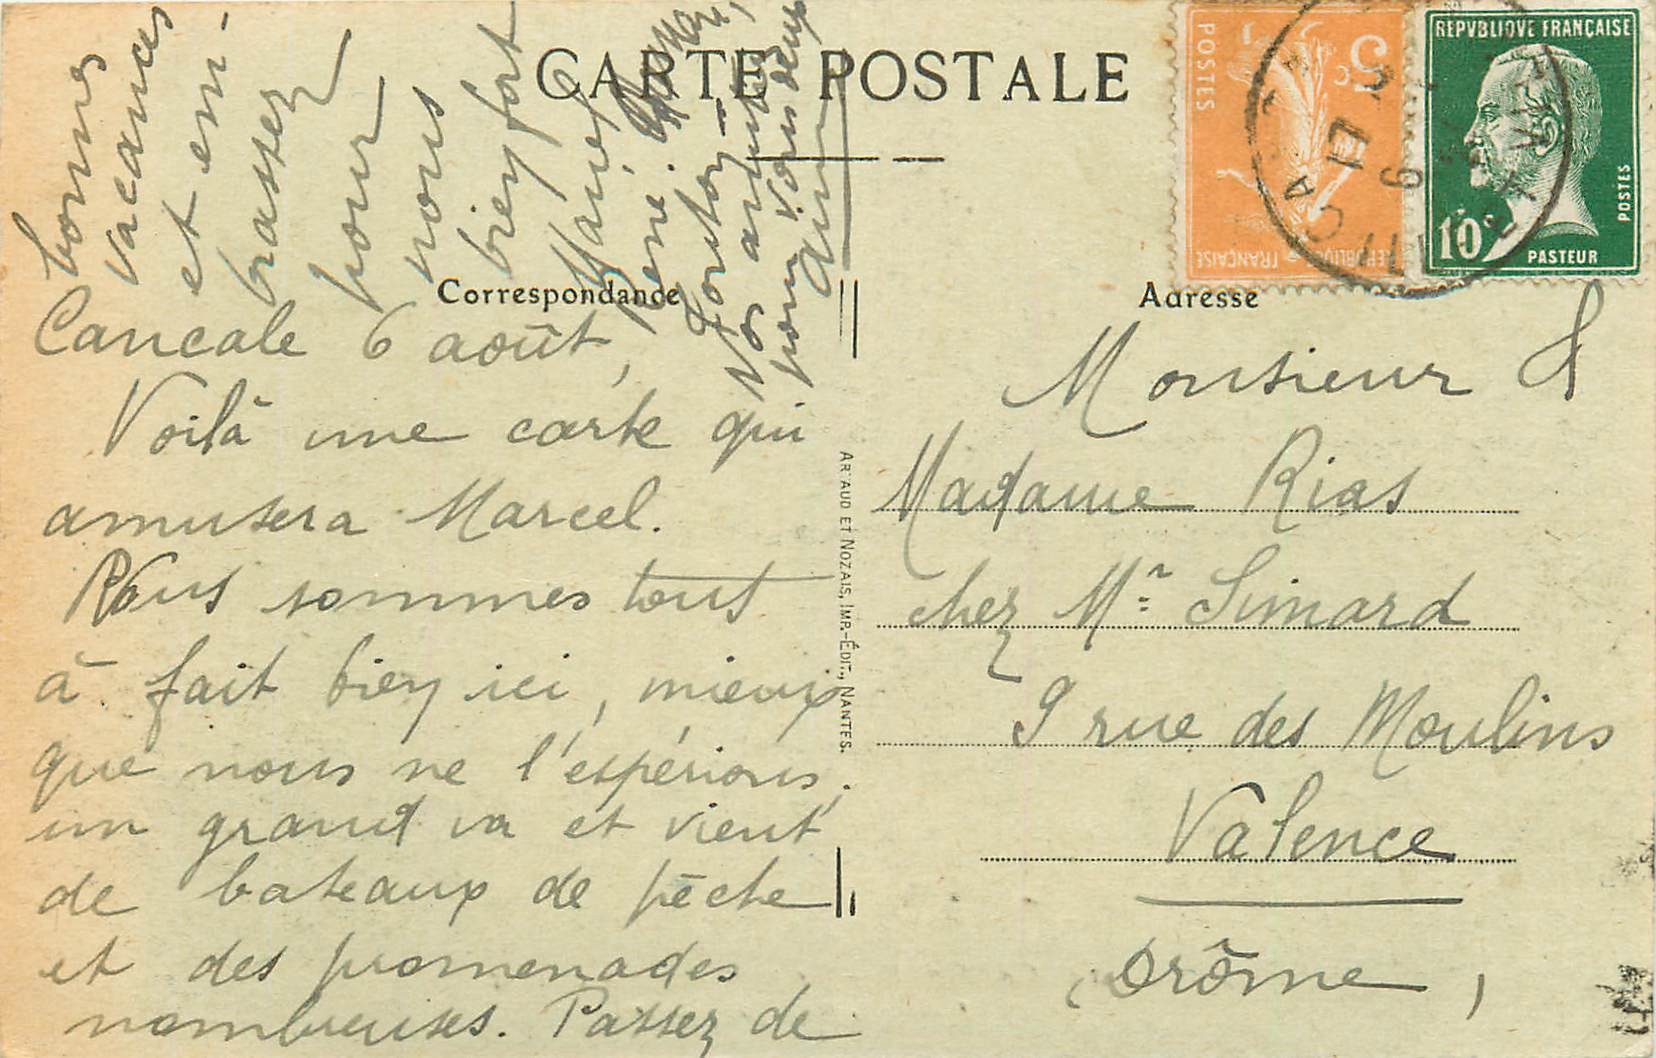 CARTE POSTALE
Correspondance
Cancale 6 août,
Voilà une carte qui
amusera Marcel.
Nous sommes tout
à fait bien ici, mieux
que nous ne l'espérions,
un grand va et vient
de bateaux de pêche
et des promenades
nombreuses. Passez de
bonnes
vacances
et em-
brassez
pour
nous
bien fort
Marief
René.
Nos amitiés
pour vous deux
ARTAUD ET NOZAIS, IMP.-ÉDIT., NANTES.
Adresse
Monsieur &
Madame Rias
chez Mr Simard
9 rue des Moulins
Valence
(Drôme)
POSTES
5c
REPUBLIQUE FRANÇAISE
REPVBLIQUE FRANÇAISE
10c
PASTEUR
POSTES
CANCALE